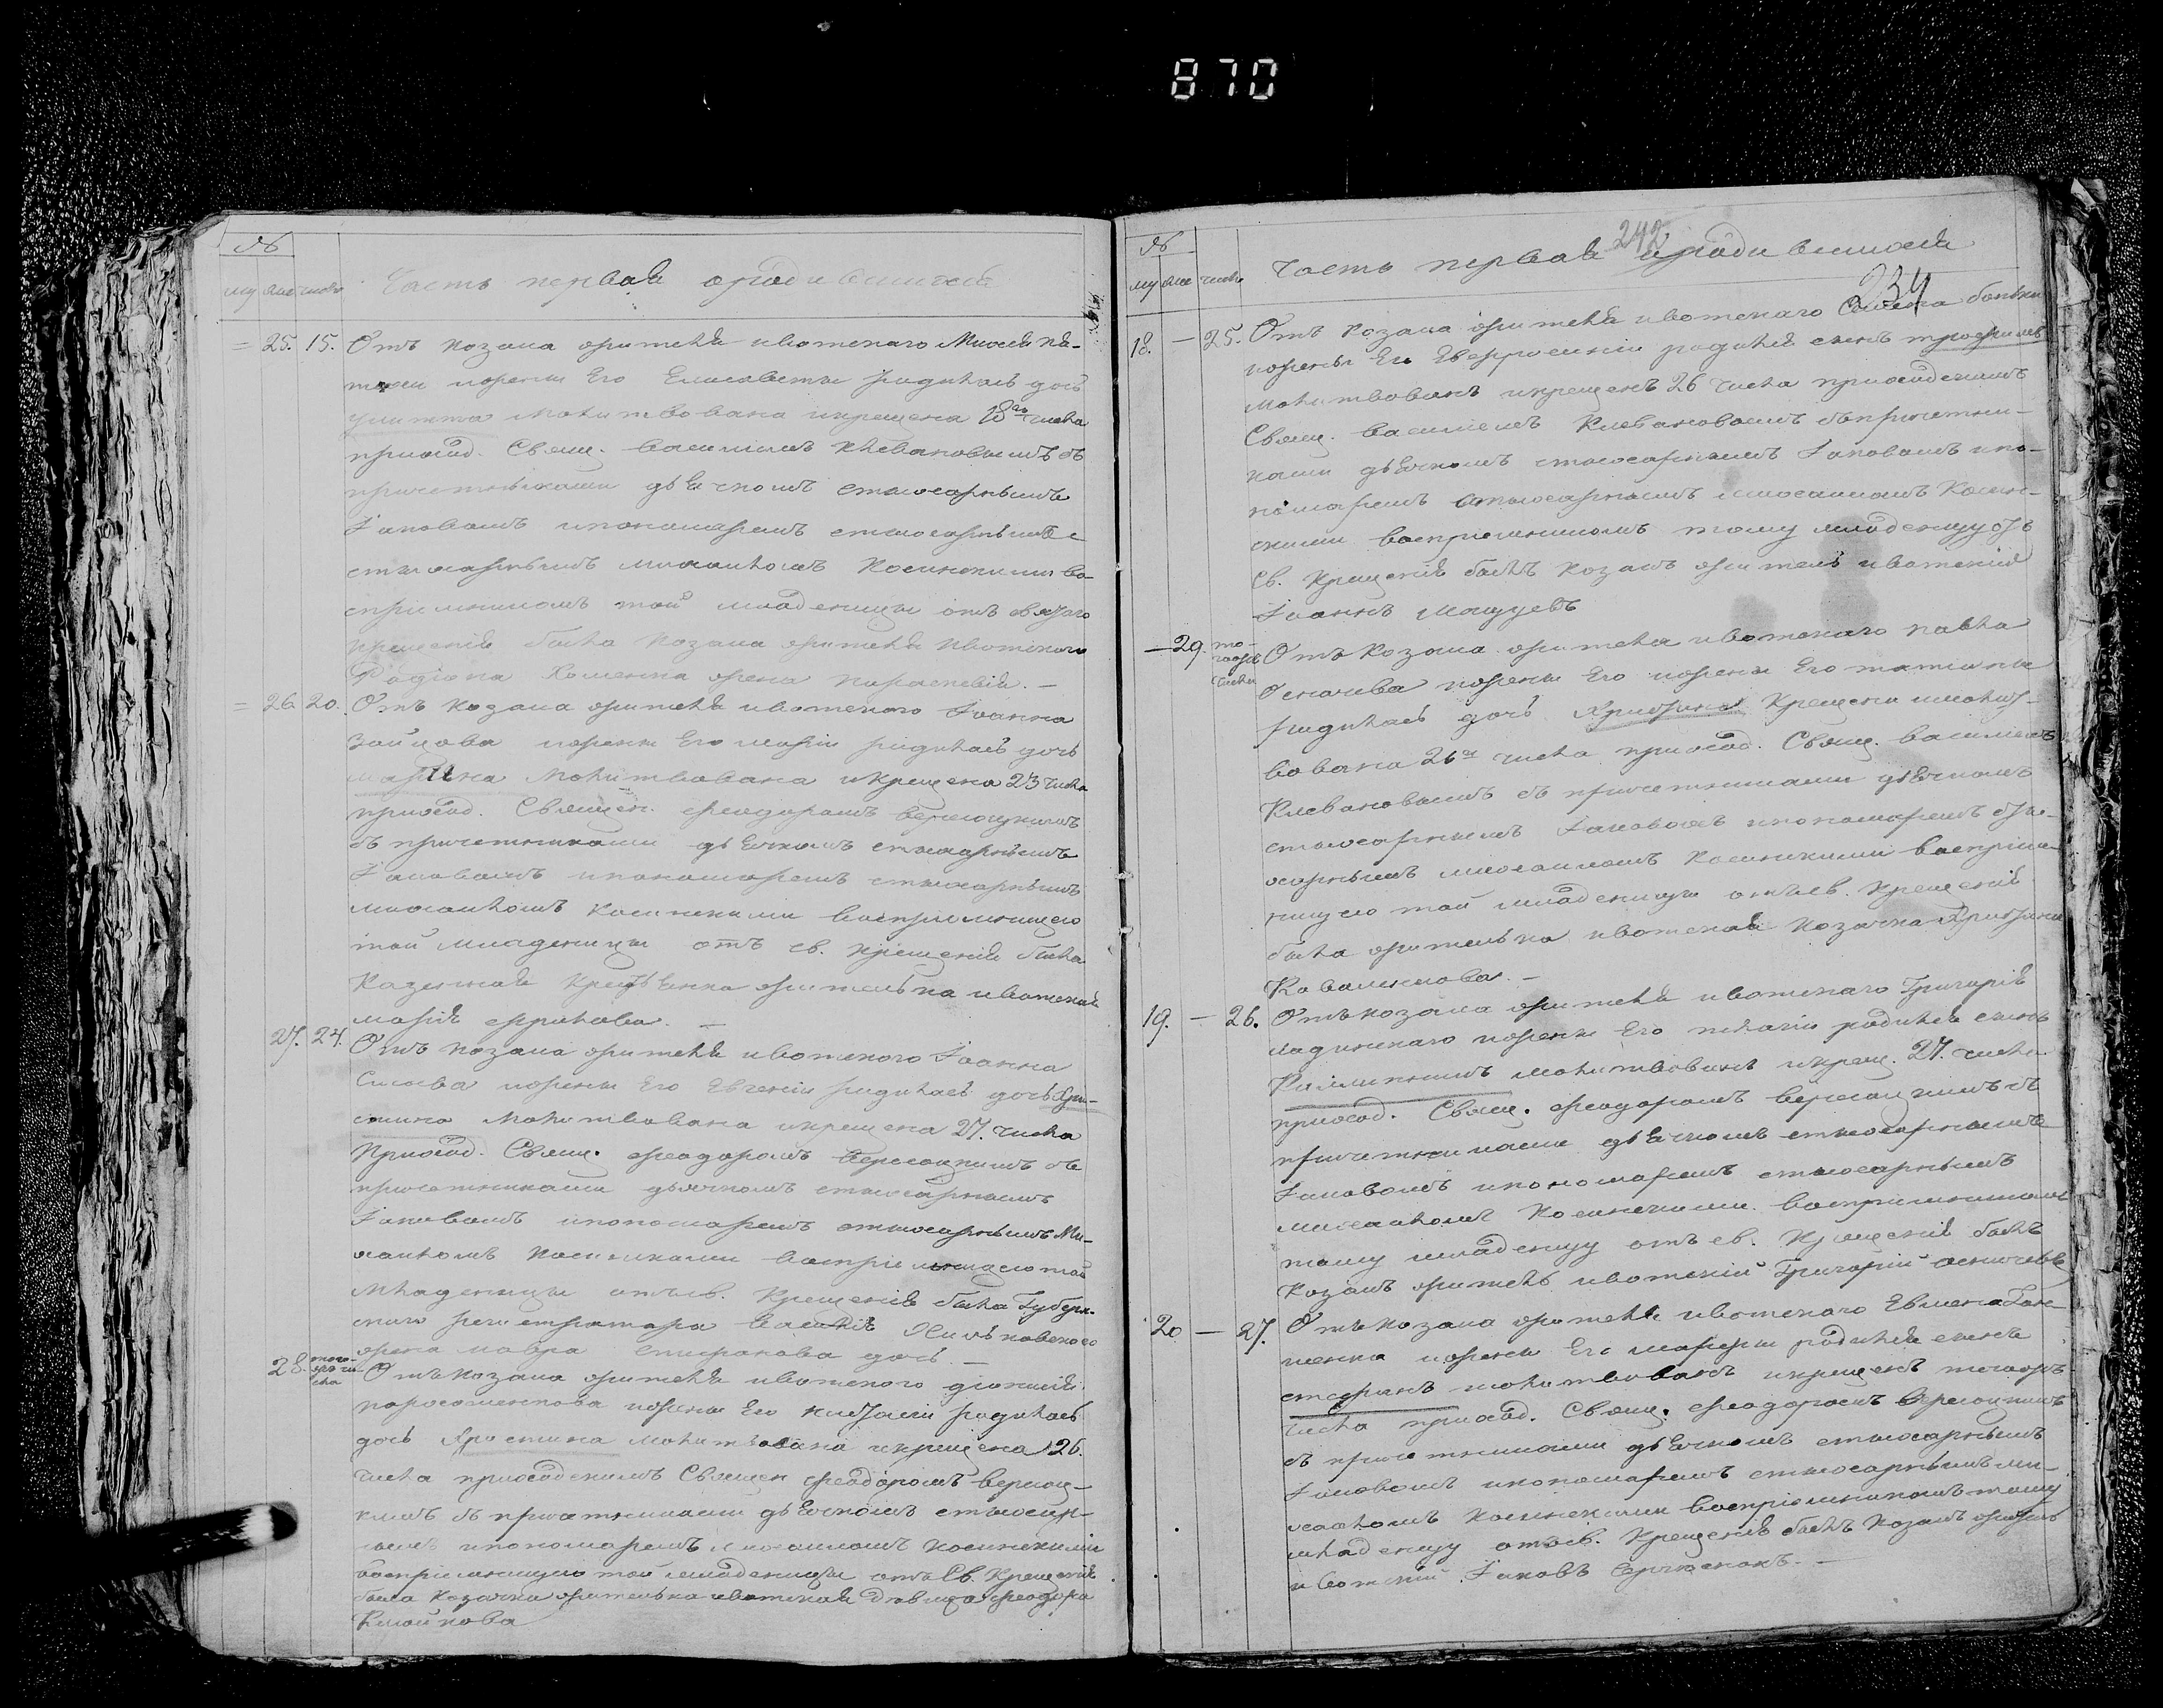 870
№
му же число Часть первая о родившихся
= 25. 15. Отъ козака жителя ивотскаго Моисея
жены его Елисаветы родилась дочь
Улитта молитвована икрещена 18го числа
приход. Свящ. василіемъ Клевановымъ съ
причетниками дьячкомъ стихарнымъ
Іаковомъ ипономаремъ стихарнымъ
стихарнымъ михаиломъ Косинскими во-
спріемницею той младеницы отъ святаго
крещенія была козака жителя Ивотскаго
Родіона Хоменка жена параскевія. —
= 26. 20. Отъ козака жителя ивотского Іоанна
Зайцова жены Его маріи родилась дочь
марина молитвована икрещена 23 числа
приход. Священ. феодоромъ
съ причетниками дьячкомъ стихарнымъ
Іаковомъ ипономаремъ стихарнымъ
михаиломъ косинскими воспріемницею
той младеницы отъ св. крещенія была
Казенная крестьянка жителька ивотская
марія —
27. 24. Отъ козака жителя ивотского Іоанна
жены Его Евгеніи родилась дочь Хри-
стина молитвована икрещена 27. числа
Приход. Свящ. феодоромъ съ
причетниками дьячкомъ стихарнымъ
Іаковомъ ипономаремъ стихарнымъ Ми-
хаиломъ косинскими воспріемницею той
младеницы отъ св. Крещенія была Губерн-
скаго регистратора
жена мавра стефанова дочь —
28. того-же чи-сла Отъ козака жителя ивотского діонисія
жены Его родилась
дочь Христина молитвована икрещена 26.
числа приходскимъ Священ феодоромъ
съ причетниками дьячкомъ стихар-
нымъ ипономаремъ михаиломъ косинскими
воспріемницею той младеницы отъ Св. Крещенія
была Козачка жителька ивотская Девица феодора

№
му же число Часть первая о родившихся
242
234
18. — 25. Отъ козака жителя ивотскаго
жены Его Евфросиніи родился сынъ трофимъ
молитвованъ икрещенъ 26 числа приходскимъ
Свящ. василіемъ Клевановымъ съпричетни-
ками дьячкомъ стихарнымъ Іаковомъ ипо-
номаремъ стихарнымъ михаиломъ Косин-
скими воспріемникомъ тому младенцу отъ
св. Крещенія былъ козакъ житель ивотскій
Іоаннъ мацуевъ
— 29. то-гоже числа Отъ Козака жителя ивотскаго павла
жены Его жены Его татіаны
родилась дочь Христина Крещена имолит-
вована 26го числа приход. Свящ. василіемъ
Клевановымъ съ причетниками дьячкомъ
стихарнымъ Іаковомъ ипономаремъ сти-
харнымъ михаиломъ косинскими воспріем-
ницею той младеницы отъ св. Крещенія
была жителька ивотская козачка Христина
Коваленкова. —
19. — 26. Отъ козака жителя ивотскаго Григорія
ладинскаго жены Его родился сынъ
молитвованъ икрещ. 27. числа
приход. Свящ. феодоромъ съ
причетниками дьячкомъ стихарнымъ
Іаковомъ ипономаремъ стихарнымъ
михаиломъ косинскими воспріемникомъ
тому младенцу отъ св. Крещенія былъ
козакъ житель ивотскій Григорій
20 — 27. Отъ козака жителя ивотскаго Евмена
жены Его марфы родился сынъ
стефанъ молитвованъ икрещенъ тогожъ
числа приход. Свящ. феодоромъ
съ причетниками дьячкомъ стихарнымъ
Іаковомъ ипономаремъ стихарнымъ ми-
хаиломъ косинскими воспріемникомъ тому
младенцу отъ св. Крещенія былъ козакъ житель
ивотскій Іаковъ —